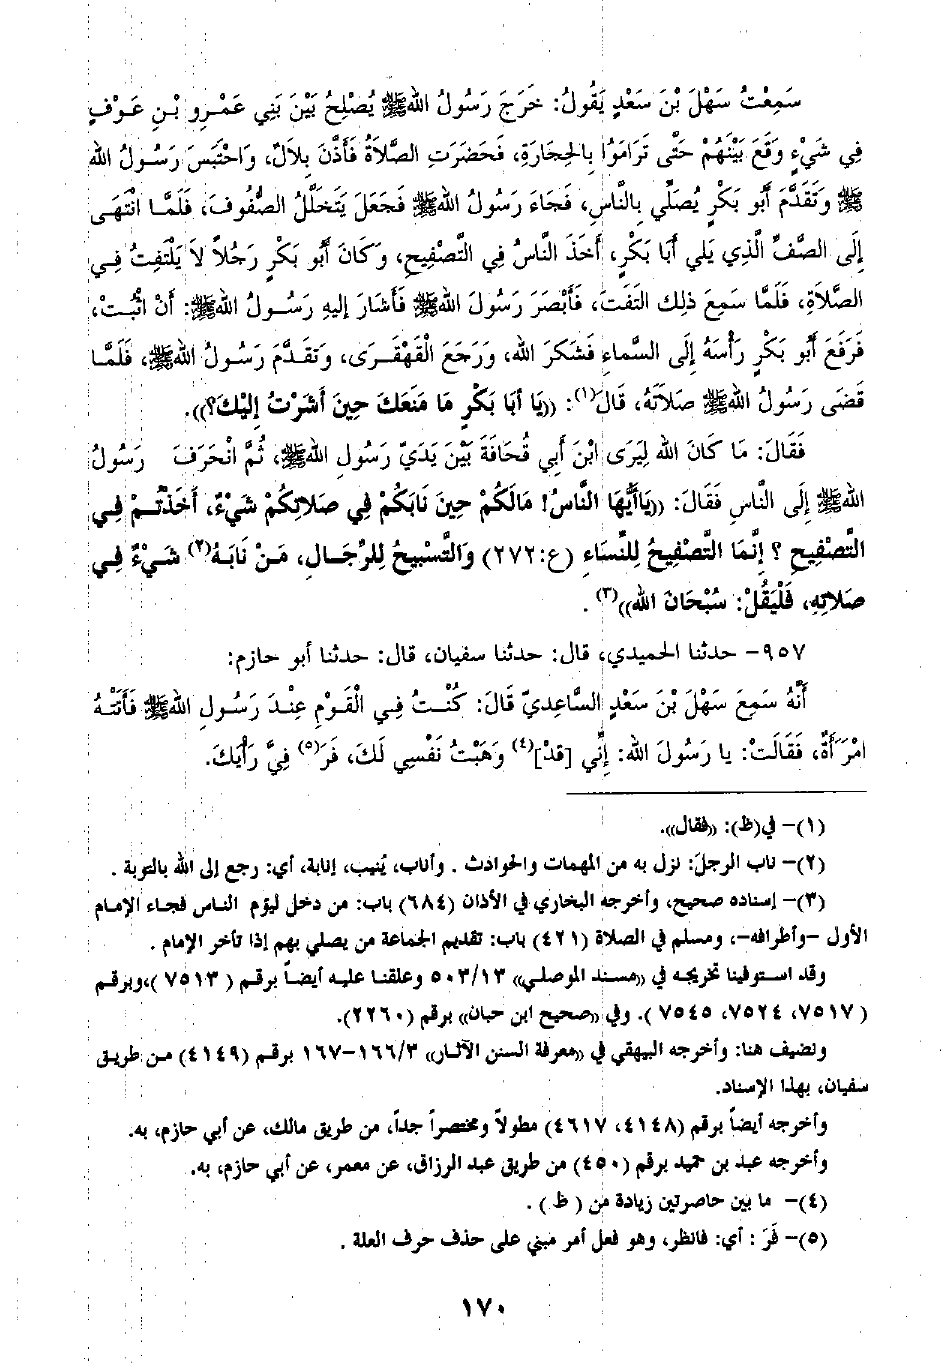 سَمِعْتُ سَهْلَ بْنَ سَعْدٍ يَقُولُ: خَرَجَ رَسُولُ اللهﷺ يُصْلِحُ بَيْنَ بَنِي عَمْرِو بْنِ عَوْفٍ
فِي شَيْءٍ وَقَعَ بَيْنَهُمْ حَتَّى تَرَامَوْا بِالحِجَارَةِ، فَحَضَرَتِ الصَّلاَةُ فَأَذَّنَ بِلاَلٌ، وَاحْتَبَسَ رَسُولُ الله
ﷺ وَتَقَدَّمَ أَبُو بَكْرٍ يُصَلِّي بِالنَّاسِ، فَجَاءَ رَسُولُ اللهﷺ فَجَعَلَ يَتَخَلَّلُ الصُّفُوفَ، فَلَمَّا انْتَهَى
إِلَى الصَّفِّ الَّذِي يَلي أَبَا بَكْرٍ، أَخَذَ النَّاسُ فِي التَّصْفِيحِ، وَكَانَ أَبُو بَكْرٍ رَجُلاً لاَ يَلْتَفِتُ فِي
الصَّلاَةِ، فَلَمَّا سَمِعَ ذلِك التَفَتَ، فَأَبْصَرَ رَسُولَ اللهﷺ فَأَشَارَ إِليهِ رَسُولُ اللهﷺ: أَنْ اثْبُتْ،
فَرَفَعَ أَبُو بَكْرٍ رَأْسَهُ إِلَى السَّماءِ فَشَكَرَ الله، وَرَجَعَ الْقَهْقَرَى، وَتَقَدَّمَ رَسُولُ اللهﷺ، فَلَمَّا
قَضَى رَسُولُ اللهﷺ صَلاَتَهُ، قَالَ(١): ((يَا أَبَا بَكْرٍ مَا مَنَعَكَ حِينَ أَشَرْتُ إِلَيْكَ؟)).
فَقَالَ: مَا كَانَ الله لِيَرَى ابْنَ أَبِي قُحَافَةَ بَيْنَ يَدَيّ رَسُولِ اللهﷺ، ثُمَّ انْحَرَفَ رَسُولُ
اللهﷺ إِلَى النَّاسِ فَقَالَ: ((يَاأَيُّهَا النَّاسُ! مَالَكُمْ حِينَ نَابَكُمْ فِي صَلاتِكُمْ شَيْءٌ، أَخَذْتُمْ فِي
التَّصْفِيحِ ؟ إِنَّمَا التَّصْفِيحُ لِلنِّسَاءِ (ع:٢٧٢) وَالتَّسْبِيحُ لِلرِّجَالِ، مَنْ نَابَهُ(٢) شَيْءٌ فِي
صَلاَتِهِ، فَلْيَقُلْ: سُبْحَانَ الله))(٣) .
٩٥٧- حدثنا الحميدي، قال: حدثنا سفيان، قال: حدثنا أبو حازم:
أَنَّهُ سَمِعَ سَهْلَ بْنَ سَعْدٍ السَّاعِدِيّ قَالَ: كُنْتُ فِي الْقَوْمِ عِنْدَ رَسُولِ اللهﷺ فَأَتَتْهُ
امْرَأَةٌ، فَقَالَتْ: يا رَسُولَ الله: إِنِّي [قدْ](٤) وَهَبْتُ نَفْسِي لَكَ، فَرَ(٥) فِيَّ رَأْيَكَ.
(١)- في(ظ): ((فقال)).
(٢)- ناب الرجلَ: نزل به من المهمات والحوادث . وأناب، يُنيب، إنابة، أي: رجع إلى الله بالتوبة .
(٣)- إسناده صحيح، وأخرجه البخاري في الأذان (٦٨٤) باب: من دخل ليؤم الناس فجاء الإمام
الأول -وأطرافه-، ومسلم في الصلاة (٤٢١) باب: تقديم الجماعة من يصلي بهم إذا تأخر الإمام .
وقد استوفينا تخريجه في ((مسند الموصلي)) ٥٠٣/١٣ وعلقنا عليه أيضاً برقم ( ٧٥١٣ )،وبرقم
( ٧٥١٧، ٧٥٢٤، ٧٥٤٥ ). وفي ((صحيح ابن حبان)) برقم (٢٢٦٠).
ونضيف هنا: وأخرجه البيهقي في ((معرفة السنن الآثار)) ١٦٦/٣-١٦٧ برقم (٤١٤٩) من طريق
سفيان، بهذا الإسناد.
وأخرجه أيضاً برقم (٤١٤٨، ٤٦١٧) مطولاً ومختصراً جداً، من طريق مالك، عن أبي حازم، به.
وأخرجه عبد بن حميد برقم (٤٥٠) من طريق عبد الرزاق، عن معمر، عن أبي حازم، به.
(٤)- ما بين حاصرتين زيادة من ( ظ ) .
(٥)- فَرَ : أي: فانظر، وهو فعل أمر مبني على حذف حرف العلة .
١٧٠